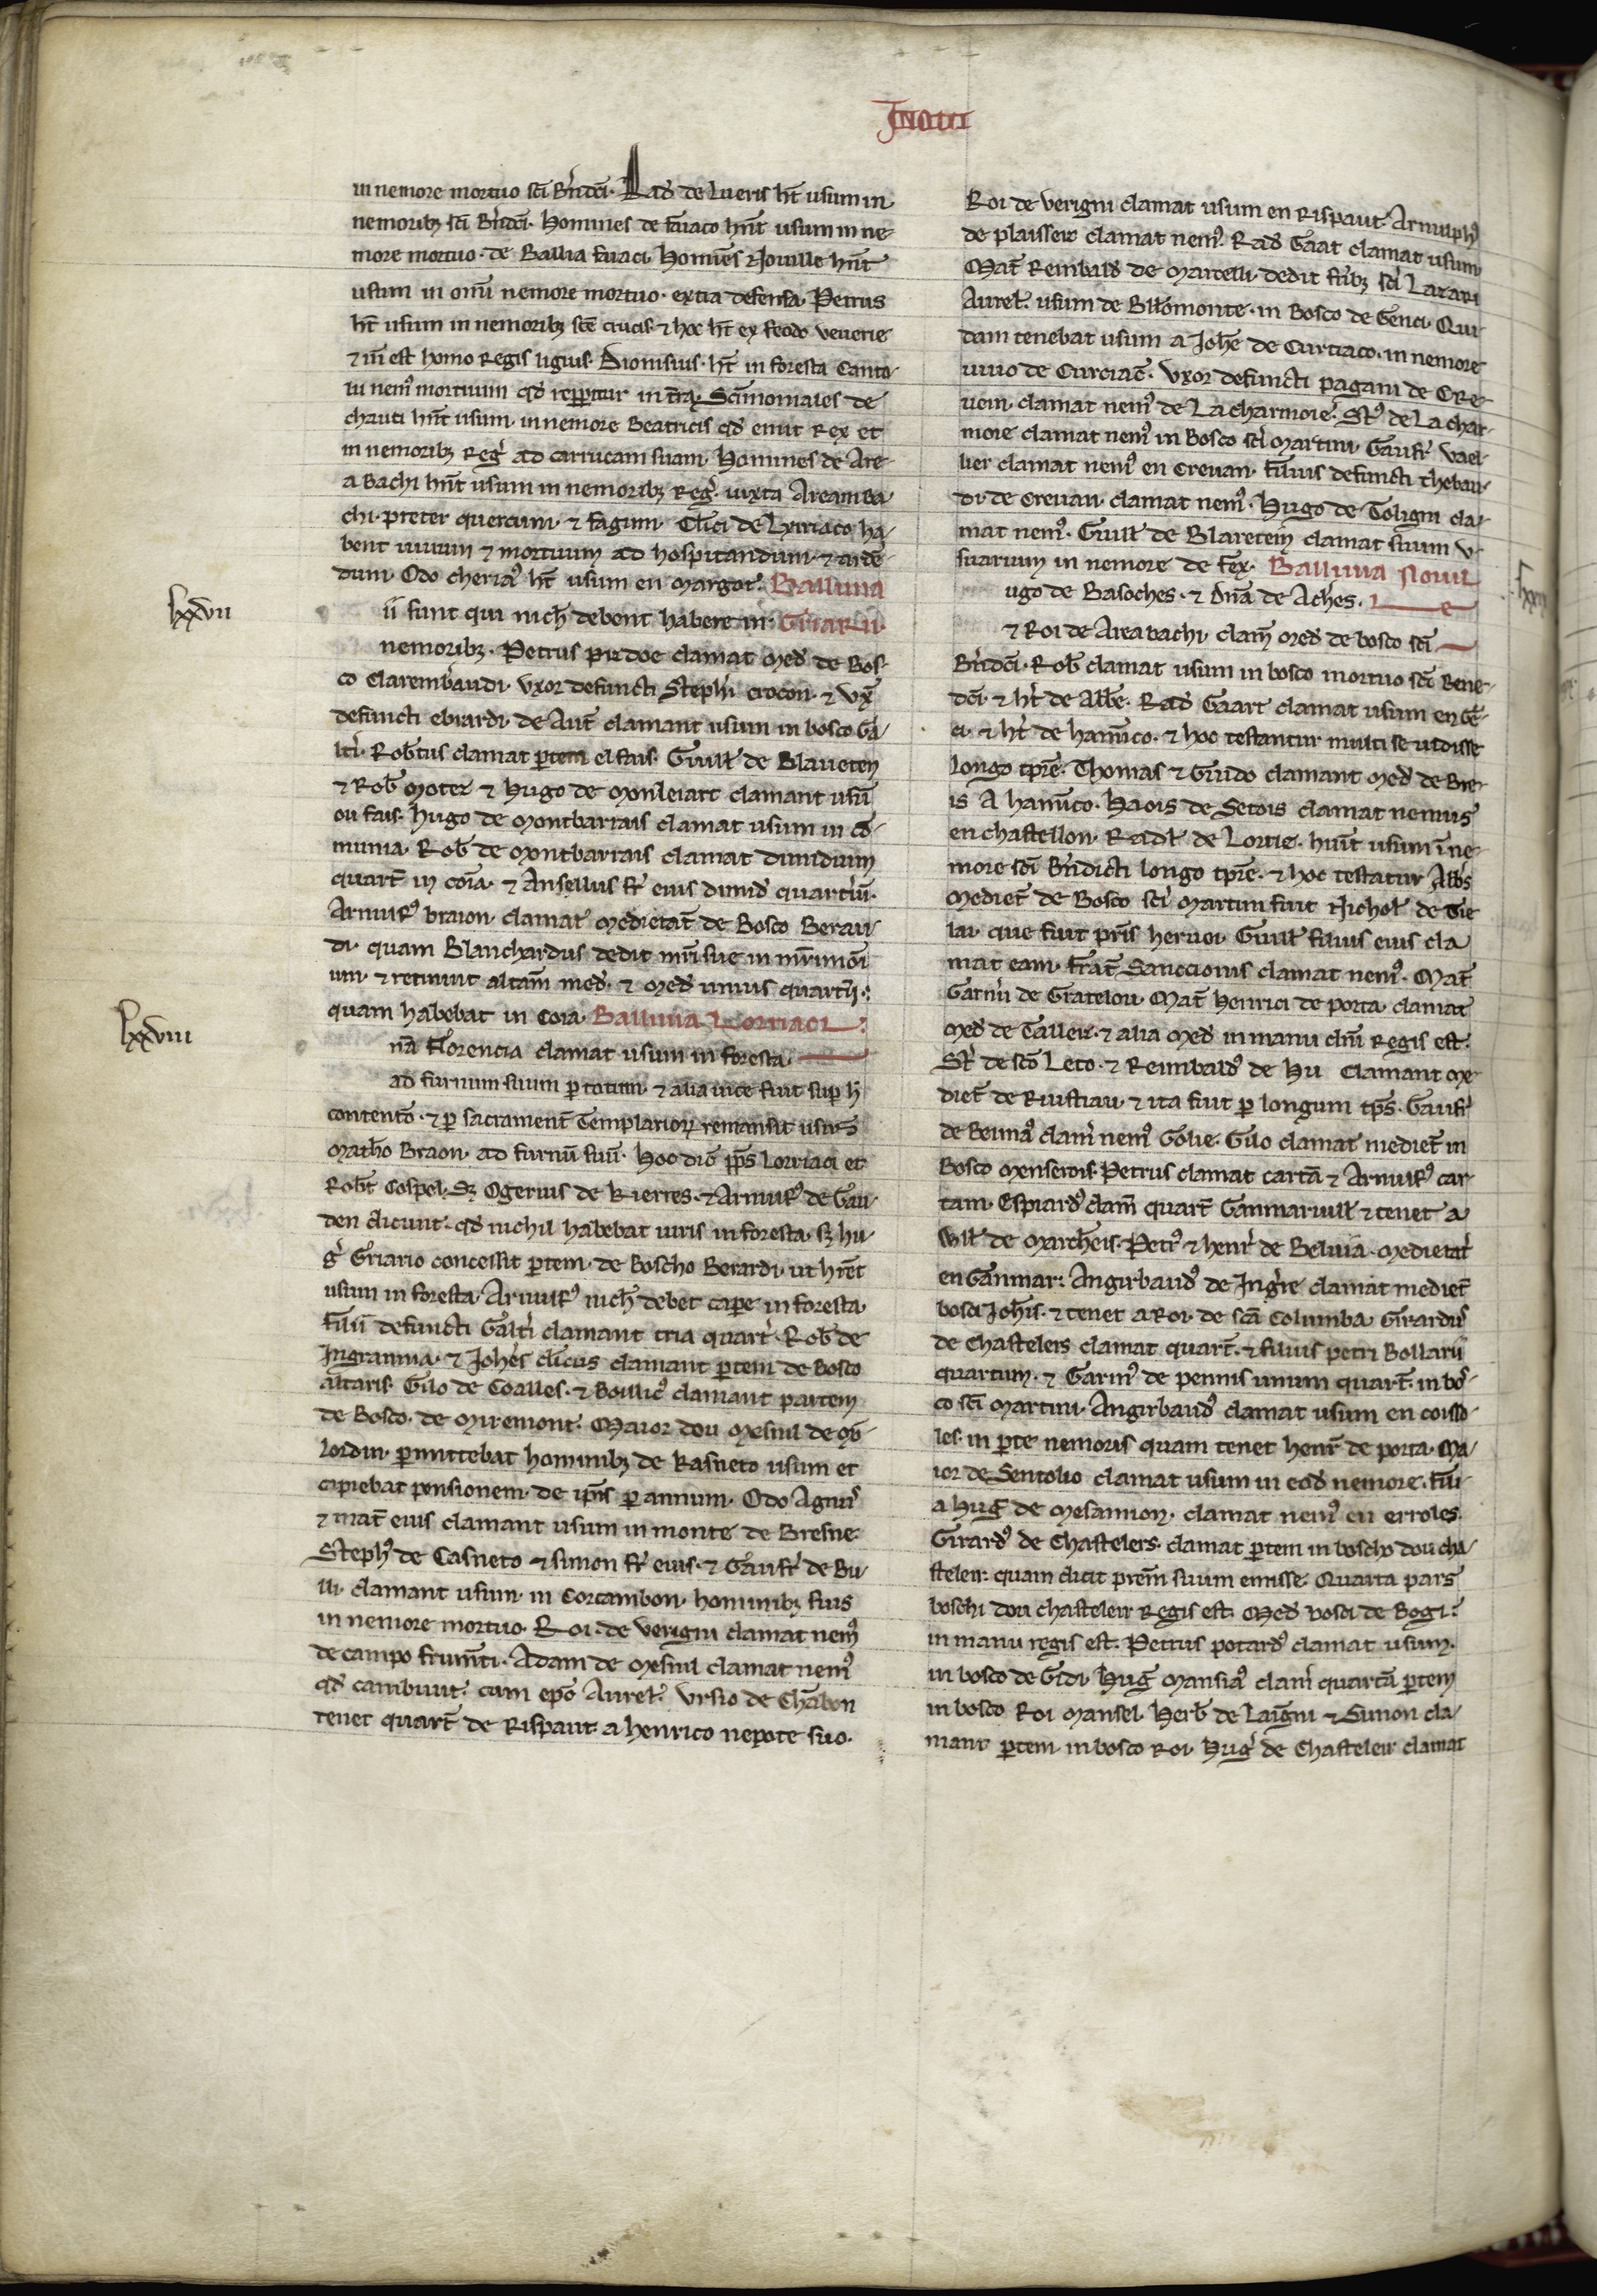 JNQUI
in nemore mortuo sci Bn̄dci. Rad de Lueris ht̄ usum in
nemoribꝫ sci Bn̄dci. Homines de faiaco hn̄t usum in ne-
more mortuo. de Ballia faiaci. Homines Noville hn̄t
usum in om̄i nemore mortuo. extra defensa. Petrus
ht̄ usum in nemoribꝫ sce crucis. ⁊ hoc ht̄ ex feodo venerie
⁊ in est homo Regis ligius. Dionisius. ht̄ in foresta Canto-
lu nemꝰ mortuum qd repperitur in tr̄a. Sc̄imoniales de
chauci hn̄t usum. in nemore Beatricis qd emit Rex et
in nemoribꝫ Reḡ ad carrucam suam. Homines de Are-
a Bachi hn̄t usum in nemoribꝫ Reḡ. iuxta Aream Ba-
chi. preter quercum. ⁊ fagum. Clīci de Lorriaco ha-
bent uiuum ⁊ mortuum ad hospitandum. ⁊ ardē
dum. Odo cheriaꝰ ht̄ usum en margot. Balliuia
lxxvii
ii sunt qui nich̄ debent habere in. Griarii
nemoribꝫ. Petrus pirdoe clamat med de Bos-
co Clarembaudi. Vxor defuncti Stephi crocon. ⁊ vx̄
defuncti ebrardi. de Aut̄ clamant usum in bosco Ga-
lt̄i. Robtus clamat ꝑtem el fais. Guillt de Blaueten
⁊ Rob moter ⁊ Hugo de monleiart clamant usū
ou fais. Hugo de montbarrais clamat usum in cō-
munia. Rob de montbarrais clamat dimidium
quart̄ in coīa. ⁊ Ansellus fr̄ eius dimid quart̄iū.
Arnulfꝰ braion. clamat medietat̄ de Bosco Berau-
di. quam Blanchardus dedit mr̄i sue in mr̄imoni
um. ⁊ retinuit altam̄ med. ⁊ med unius quart̄i.
quam habebat in coīa. Balliuia Lorriaci
lxxviii
nā Florencia clamat usum in foresta.
ad furnum suum ꝑ totum. ⁊ alia uice fuit suꝑ h̄
contento. ⁊ ꝑ sacrament̄ Templarioꝝ remansit usus
Matho Braon. ad furnū suū. Hoc dic̄ pp̄s Lorriaci et
Robt̄ Cospel. Sꝫ Ogerius de Kierres. ⁊ Arnulfꝰ de Gau-
den dicunt. qd nichil habebat iuris in foresta. sꝫ hu-
ḡ Griario concessit ꝑtem. de Boscho Berardi. ut hr̄et
usum in foresta. Arnulfꝰ nich̄ debet caꝑe in foresta.
Filii defuncti Galt̄i clamant tria quart̄. Rob de
Ingrannia. ⁊ Johes clīcus clamant ꝑtem de Bosco
altaris. Gilo de Coalles. ⁊ Boillicꝰ clamant partem
de Bosco. de Miremont. Maior dou Mesnil de mō-
lordin. ꝑmittebat hominibꝫ de Kasneto usum et
capiebat pensionem. de ip̄is ꝑ annum. Odo Agnuꝰ
⁊ mat̄ eius clamant usum in monte de Bresne.
Stephꝰ de Casneto ⁊ simon fr̄ eius. ⁊ Gaufr̄ de Bu-
lli. clamant usum. in Corcambon. hominibꝫ suis
in nemore mortuo. Roi. de verigni clamat nemꝰ
de campo frum̄ti. Adam de mesnil clamat nemꝰ
qd cambiuit. cum epō Aurel̄. Vrsio de Chābon
tenet quart̄ de Rispaut. a henrico nepote suo.
Roi de verigni clamat usum en Rispaut. Arnulphꝰ
de plaisseir clamat nemꝰ. Rad Gaat clamat usum
Mat̄ Reinbald de martelli. dedit fr̄ibꝫ sci Lazari
Aurel̄. usum de Bl̄lomonte. in Bosco de Genci. Qui-
dam tenebat usum a Johē de Curciaco. in nemore
uiuo de Curciac̄. Vxor defuncti pagani de Cre-
uein. clamat nemꝰ de La charmoie. St̄ꝰ de La char-
more clamat nemꝰ in Bosco sci martini. Gaufr̄ Vael-
lier clamat nemꝰ en creuan. Filius defuncti thebau-
di de creuan. clamat nemꝰ. Hugo de Toligni cla-
mat nemꝰ. Guillt de Blaretein clamat suum v-
suarium in nemore de Fex. Balliuia Nouil
le
ugo de Basoches. ⁊ Dn̄a de Aches.
⁊ Roi de Area bachi. clam̄ med de bosco sci
Bn̄dci. Rob clamat usum in bosco mortuo sci Bene-
dci. ⁊ ht̄ de Abbe. Rad Gaart clamat usum en Gē-
ci. ⁊ ht̄ de ham̄ico. ⁊ hoc testantur multi se uidisse
longo tp̄re. Thomas ⁊ Guido clamant med de Bre-
is A ham̄ico. Haois de Setois clamat nemus
en chastellon. Radl̄ de Lorrie. hūit usum ī ne-
more sci Bn̄dicti longo tp̄re. ⁊ hoc testatur Abbs
Mediet̄ de Bosco sci martini fuit Nichol̄ de Tie
lai. que fuit pr̄is heruei. Guillt filius eius cla
mat eam. Frat̄ Sanccionis clamat nemꝰ. Mat̄
Garnii de Gratelou. Mat̄ henrici de porta. clamat
med de Talleir. ⁊ alia med in manu dn̄i Regis est.
St̄ de sco Leto. ⁊ Reinbaldꝰ de Hu clamant me-
diet̄ de Ruistiau. ⁊ ita fuit ꝑ longum tp̄s. Gaufr̄
de Beunaꝰ clam̄ nemꝰ Golie. Gilo clamat mediet̄ in
Bosco menserois. Petrus clamat cartā ⁊ Arnulfꝰ car-
tam. Espiardꝰ clam̄ quart̄ Ganmaruill̄ ⁊ tenet a
Will̄ de marcheis. Petrꝰ ⁊ henr̄ de Beluia. medietat̄
en Ganmar. Angirbaudꝰ de Ingre clamat mediet̄
bosci Johis. ⁊ tenet a Roi. de scā Columba. Girardꝰ
de Chastelers clamat quart̄. ⁊ filius petri Bollarii
quartum. ⁊ Garinꝰ de pennis unum quart̄. in bos-
co sci martini. Angirbaudꝰ clamat usum en coisso-
les. in ꝑte nemoris quam tenet henr̄ de porta. Ma-
ior de Sentolio clamat usum in eod nemore. Fili-
a Hug̅ de mesannion. clamat nemꝰ en erroles.
Girardꝰ de Chastelers. clamat ꝑtem in boscho dou cha-
steleir. quam dicit prem̄ suum emisse. Quarta pars
boschi dou chasteleir Regis est. Med bosci de Bogi.
in manu regis est. Petrus potardꝰ clamat usum.
in bosco de Gidi. Hug̅ mansiaꝰ clam̄ quartā ꝑtem
in bosco Roi Mansel. Herb̄ de Laigni ⁊ Simon cla-
mant ꝑtem. in bosco Roi. Hug̅ de Chasteleir clamat